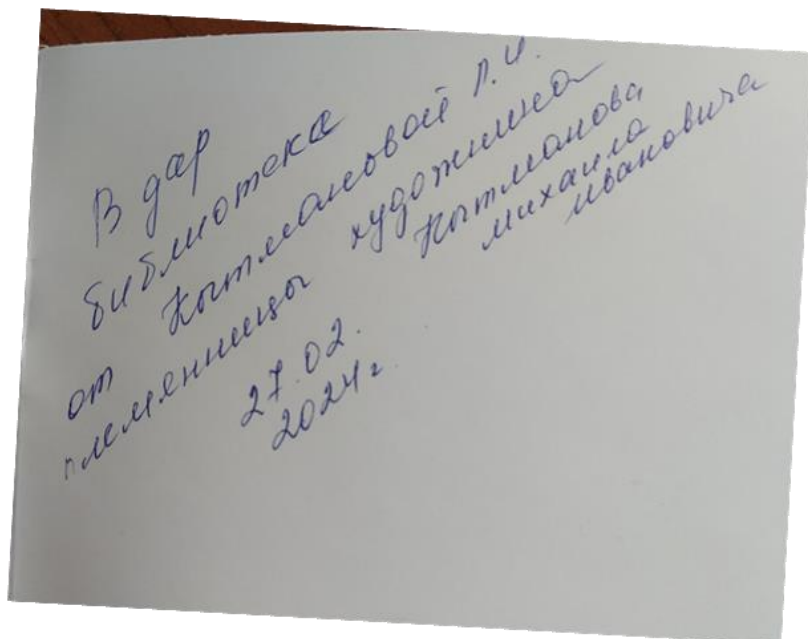 В дар
библиотеке
от Кытмановой Л.И.
племянницы художника
Кытманова
Михаила
Ивановича
27.02.
2024г.